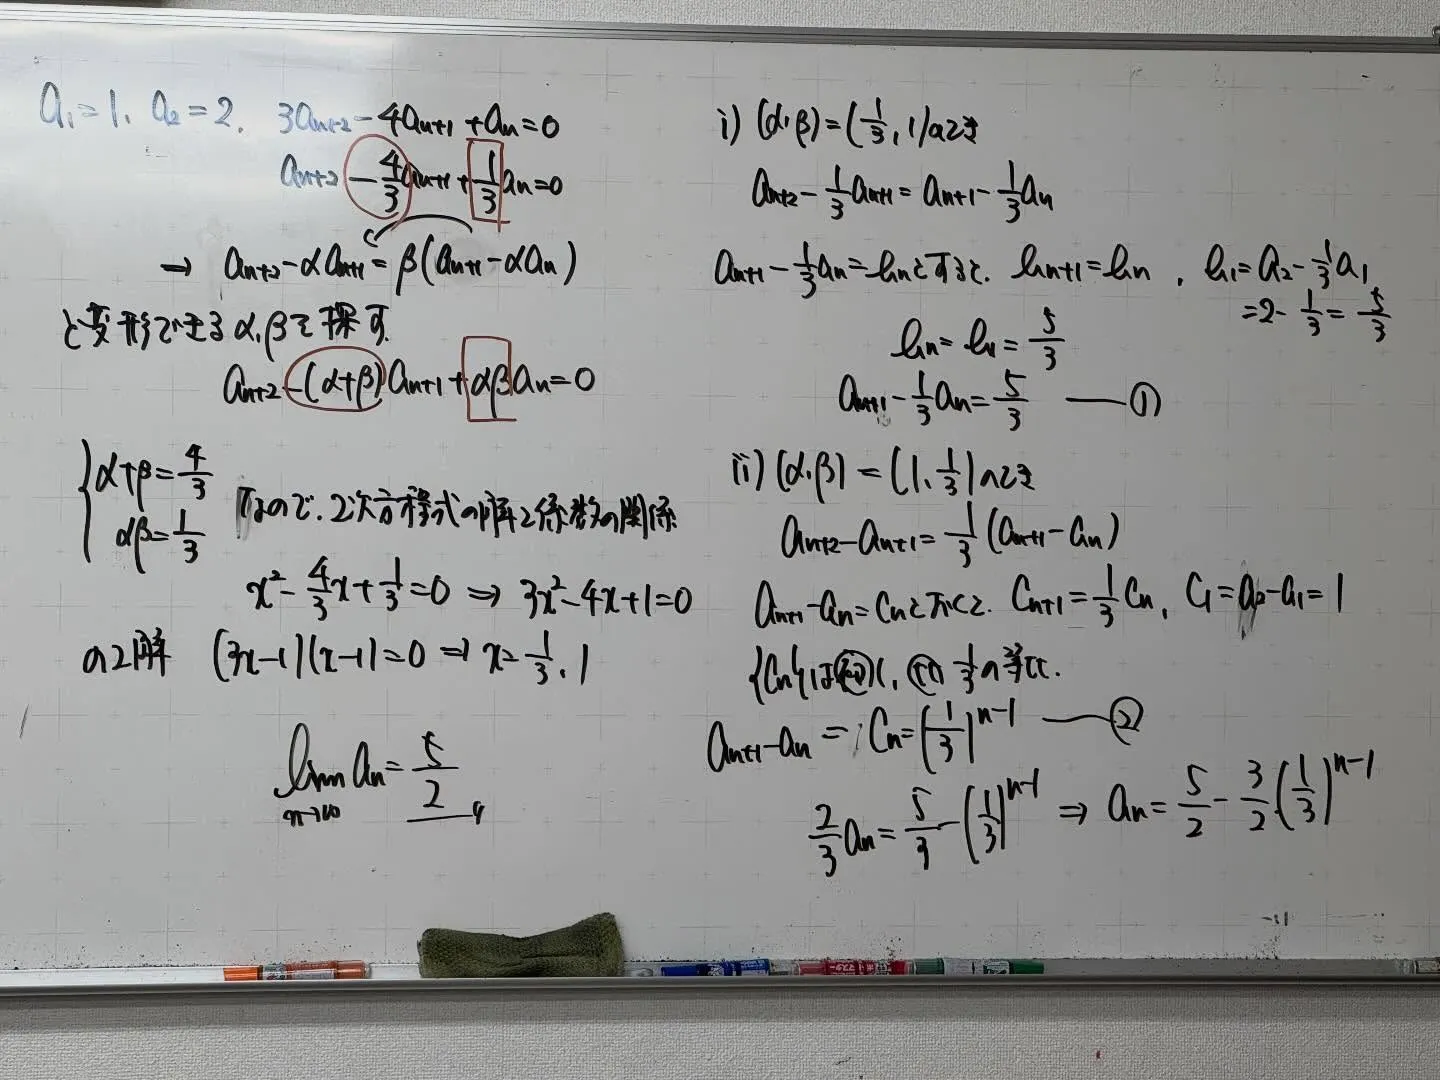 a₁=1, a₂=2, 3aₙ₊₂-4aₙ₊₁+aₙ=0
aₙ₊₂-4/3aₙ₊₁+1/3aₙ=0
→ aₙ₊₂-αaₙ₊₁=β(aₙ₊₁-αaₙ)
と変形できるα,βを探す.
aₙ₊₂-(α+β)aₙ₊₁+αβaₙ=0
α+β=4/3
αβ=1/3
なので, 2次方程式の解と係数の関係
x²-4/3x+1/3=0 ⇒ 3x²-4x+1=0
の2解 (3x-1)(x-1)=0 ⇒ x=1/3, 1
lim n→∞ aₙ=5/2
i) (α,β)=(1/3, 1)のとき
aₙ₊₂-1/3aₙ₊₁=aₙ₊₁-1/3aₙ
aₙ₊₁-1/3aₙ=bₙとすると, bₙ₊₁=bₙ, b₁=a₂-1/3a₁
=2-1/3=5/3
bₙ=b₁=5/3
aₙ₊₁-1/3aₙ=5/3 ―①
ii) (α,β)=(1, 1/3)のとき
aₙ₊₂-aₙ₊₁=1/3(aₙ₊₁-aₙ)
aₙ₊₁-aₙ=cₙとおくと, cₙ₊₁=1/3cₙ, c₁=a₂-a₁=1
{cₙ}は初1, 公1/3の等比.
aₙ₊₁-aₙ=cₙ=(1/3)ⁿ⁻¹ ―②
2/3aₙ=5/3-(1/3)ⁿ⁻¹ ⇒ aₙ=5/2-3/2(1/3)ⁿ⁻¹